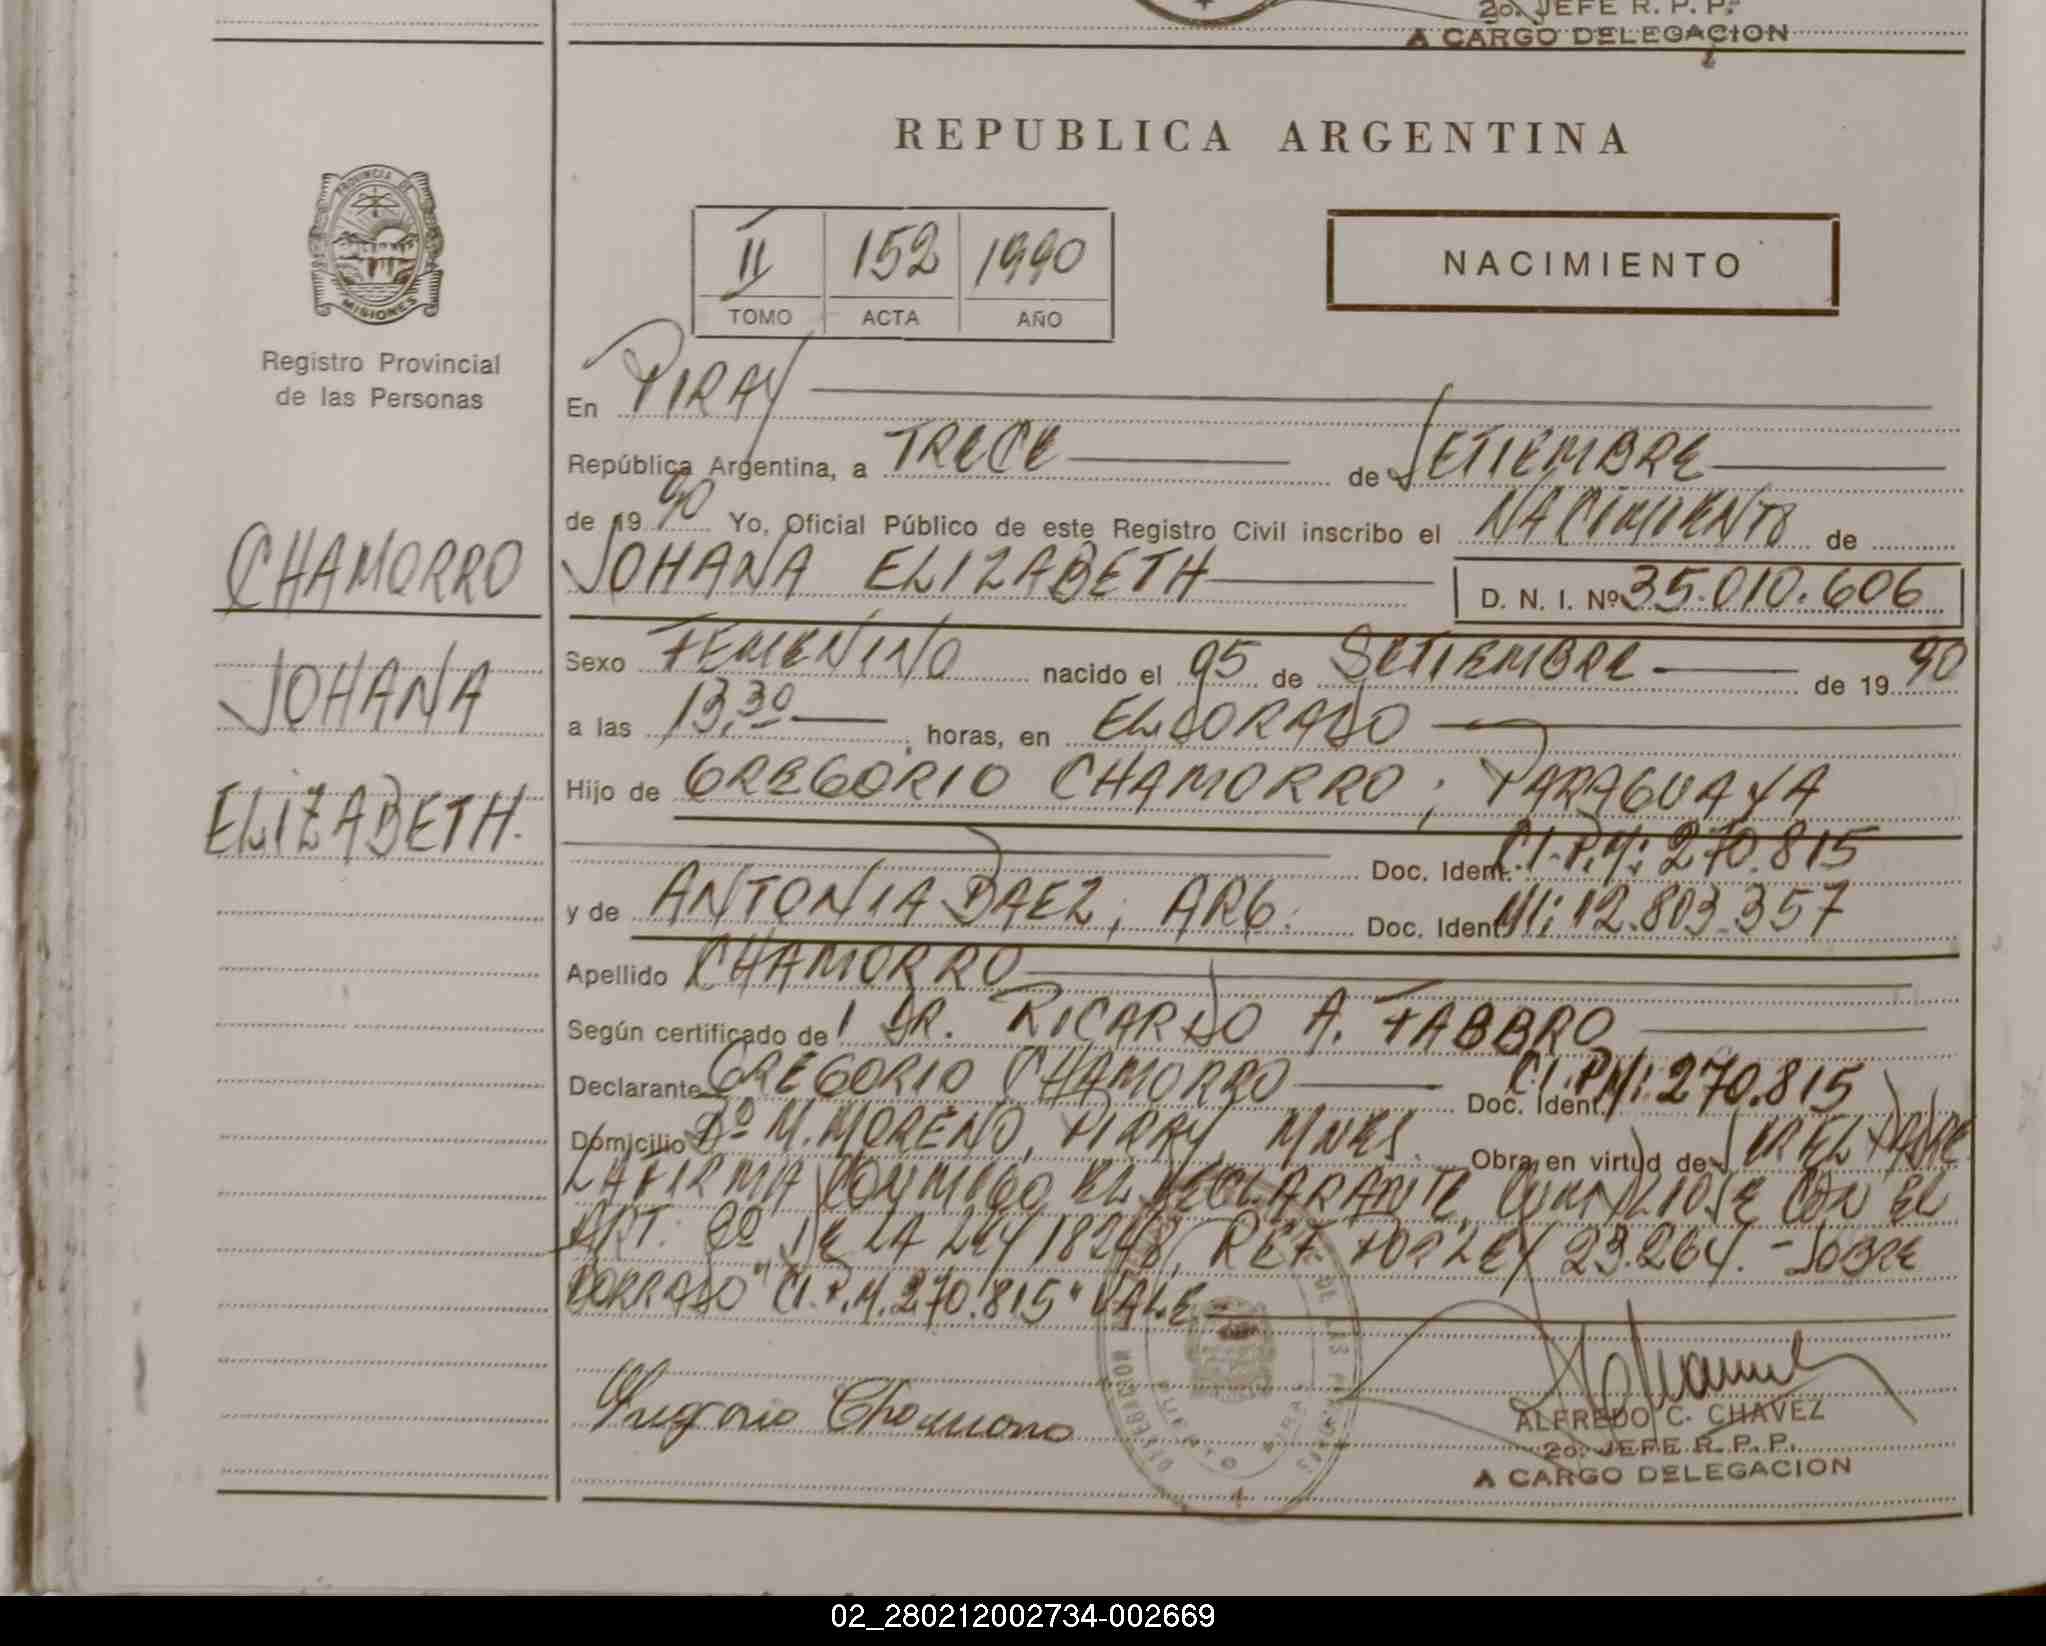 2o. JEFE R. P. P.
A CARGO DELEGACION
REPUBLICA ARGENTINA
PROVINCIA DE
MISIONES
II 152 1990
TOMO ACTA AÑO
NACIMIENTO
Registro Provincial
de las Personas
CHAMORRO
JOHANA
ELIZABETH.
En PIRAY
República Argentina, a TRECE de SETIEMBRE
de 1990 Yo, Oficial Público de este Registro Civil inscribo el NACIMIENTO de
JOHANA ELIZABETH D. N. I. Nº 35.010.606
Sexo FEMENINO nacido el 05 de SETIEMBRE de 1990
a las 13,30 horas, en ELDORADO
Hijo de GREGORIO CHAMORRO; PARAGUAYA
Doc. Ident. C.I.P.M: 270.815
y de ANTONIA BAEZ; ARG. Doc. Ident. MI: 12.803.357
Apellido CHAMORRO
Según certificado del DR. RICARDO A. FABBRO
Declarante GREGORIO CHAMORRO Doc. Ident. C.I.P.M: 270.815
Domicilio Bº M. MORENO, PIRAY, MNES. Obra en virtud de SER EL PADRE
LA FIRMA CONMIGO EL DECLARANTE, CUMPLIOSE CON EL
ART. DE LA LEY 18248, REF. POR LEY 23.264. - SOBRE
BORRADO "C.I.P.M. 270.815" VALE
Gregorio Chamorro
ALFREDO C. CHAVEZ
2o. JEFE R. P. P.
A CARGO DELEGACION
02_280212002734-002669